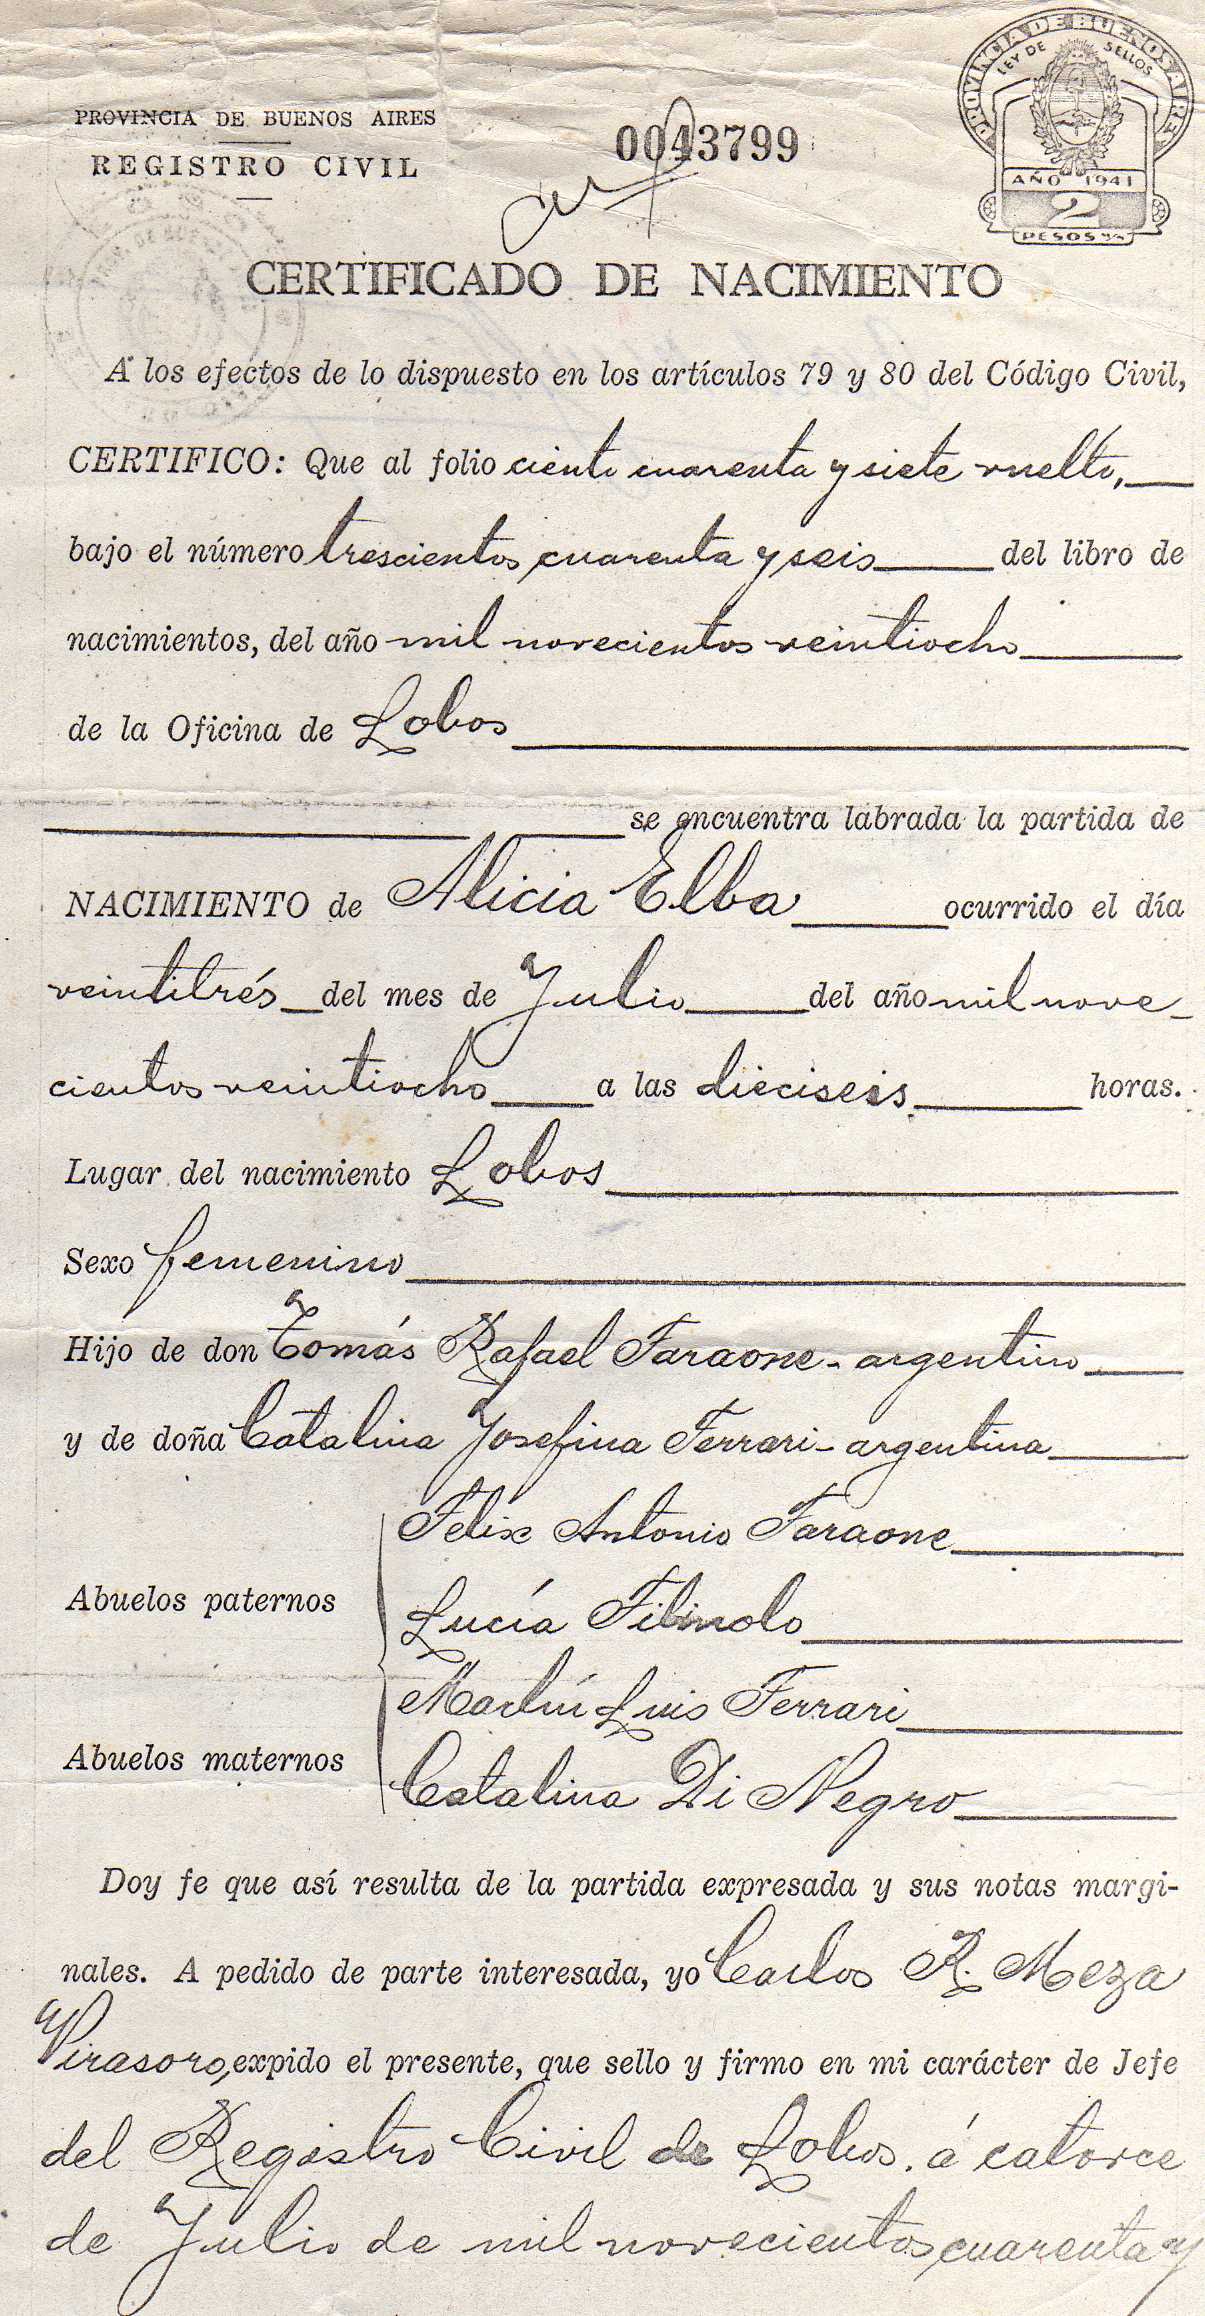 PROVINCIA DE BUENOS AIRES
REGISTRO CIVIL
0043799
PROVINCIA DE BUENOS AIRES
LEY DE SELLOS
AÑO 1941
2
PESOS m/n
CERTIFICADO DE NACIMIENTO
A los efectos de lo dispuesto en los artículos 79 y 80 del Código Civil,
CERTIFICO: Que al folio ciento cuarenta y siete vuelto,
bajo el número trescientos cuarenta y seis del libro de
nacimientos, del año mil novecientos veintiocho
de la Oficina de Lobos
se encuentra labrada la partida de
NACIMIENTO de Alicia Elba ocurrido el día
veintitrés del mes de Julio del año mil nove-
cientos veintiocho a las dieciseis horas.
Lugar del nacimiento Lobos
Sexo femenino
Hijo de don Tomás Rafael Faraone - argentino
y de doña Catalina Josefina Ferrari - argentina
Felix Antonio Faraone
Abuelos paternos
Lucía
Martín Luis Ferrari
Abuelos maternos
Catalina Di Negro
Doy fe que así resulta de la partida expresada y sus notas margi-
nales. A pedido de parte interesada, yo Carlos R. Meza
Virasoro, expido el presente, que sello y firmo en mi carácter de Jefe
del Registro Civil de Lobos. á catorce
de Julio de mil novecientos cuarenta y